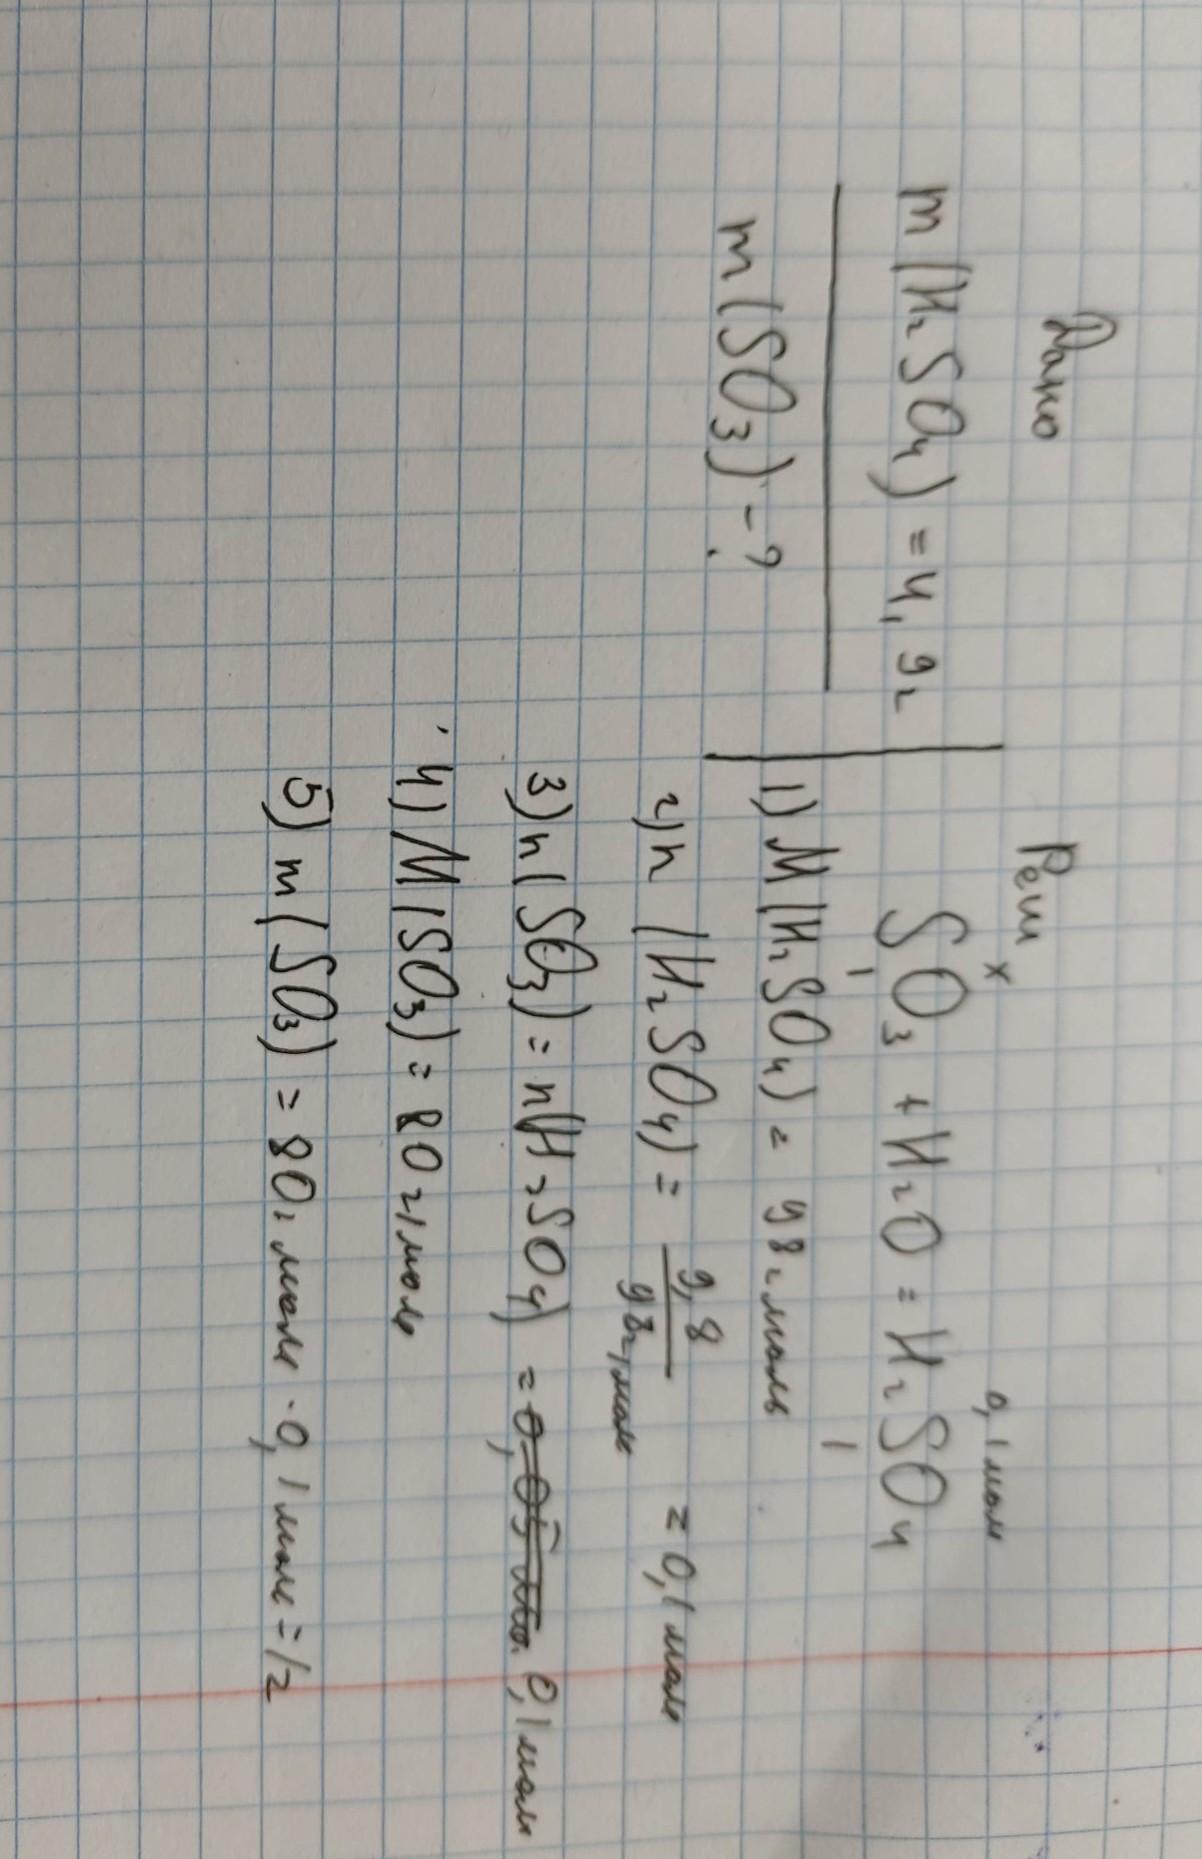 Дано
m(H₂SO₄) = 4,9г
m(SO₃) - ?
Реш
x 0,1 моль
SO₃ + H₂O = H₂SO₄
1 1
1) M(H₂SO₄) = 98г/моль
2) n(H₂SO₄) = 9,8 / 98г/моль = 0,1 моль
3) n(SO₃) = n(H₂SO₄) = 0,1 моль
4) M(SO₃) = 80 г/моль
5) m(SO₃) = 80г/моль · 0,1 моль =